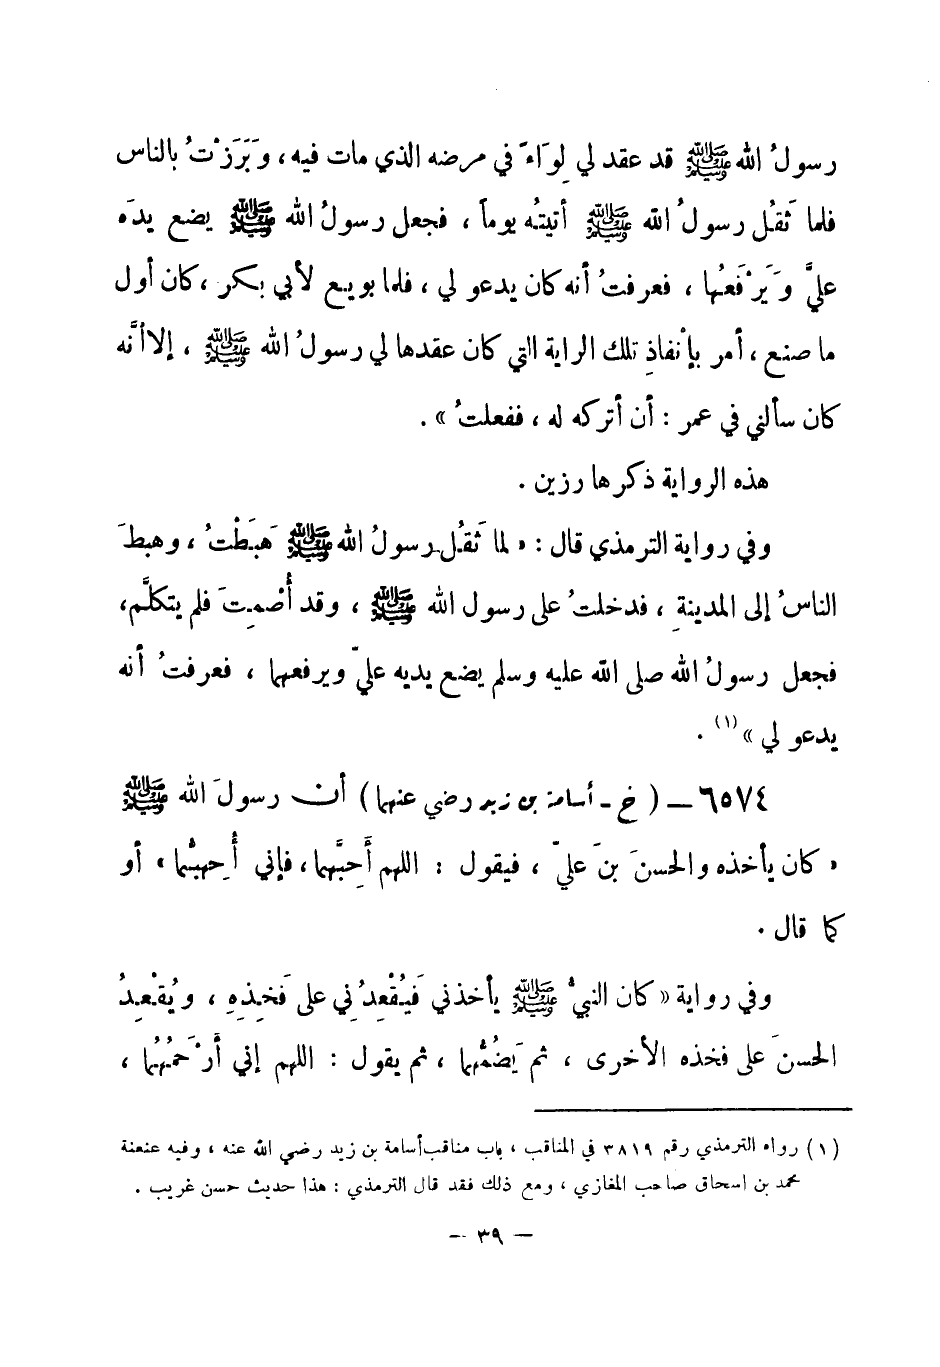 رسولُ الله ﷺ قد عقد لي لِوَاءً في مرضه الذي مات فيه ، وَبَرَزْتُ بالناس
فلما ثَقُل رسولُ الله ﷺ أتيتُه يوماً ، فجعل رسولُ الله ﷺ يضع يدَه
عليَّ وَيَرْفَعُها ، فعرفتُ أنه كان يدعو لي ، فلما بويع لأبي بكر ، كان أول
ما صنع ، أمر بإنْفاذِ تلك الراية التي كان عقدها لي رسولُ الله ﷺ ، إلا أنَّه
كان سألني في عمر : أن أتركه له ، ففعلتُ » .
هذه الرواية ذكرها رزين .
وفي رواية الترمذي قال : « لما ثَقُل رسولُ الله ﷺ هَبَطْتُ ، وهبطَ
الناسُ إلى المدينةِ ، فدخلتُ على رسول الله ﷺ ، وقد أُصْمِتَ فلم يتكلَّم ،
فجعل رسولُ الله صلى الله عليه وسلم يضع يديه عليّ ويرفعهما ، فعرفتُ أنه
يدعو لي » (١) .
٦٥٧٤ — ( خ - أسامة بن زيد رضي عنهما ) أن رسولَ الله ﷺ
« كان يأخذه والحسنَ بنَ عليّ ، فيقول : اللهم أَحِبَّهما ، فإني أُحِبهُّما » أو
كما قال .
وفي رواية « كان النبيُّ ﷺ يأخذني فَيُقْعِدُني على فَخِذِهِ ، ويُقْعِدُ
الحسنَ على فخذه الأخرى ، ثم يَضُمُّهما ، ثم يقول : اللهم إني أَرْحَمُهُما ،
(١) رواه الترمذي رقم ٣٨١٩ في المناقب ، باب مناقب أسامة بن زيد رضي الله عنه ، وفيه عنعنة
محمد بن اسحاق صاحب المغازي ، ومع ذلك فقد قال الترمذي : هذا حديث حسن غريب .
— ٣٩ —